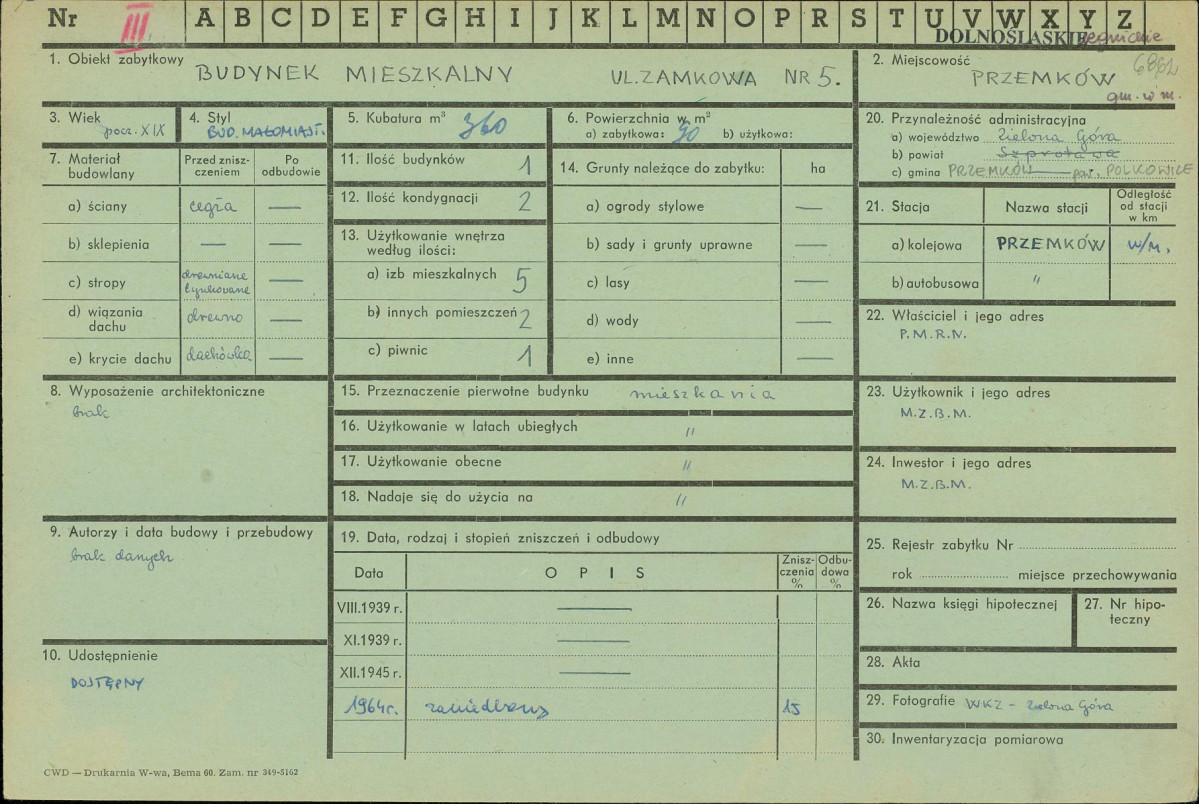 Nr III A B C D E F G H I J K L M N O P R S T U V W X Y Z
DOLNOŚLĄSKIE legnickie
1. Obiekt zabytkowy BUDYNEK MIESZKALNY UL. ZAMKOWA NR 5.
2. Miejscowość 6862
PRZEMKÓW
gm. w m.
3. Wiek pocz. XIX
4. Styl BUD. MAŁOMIAST.
5. Kubatura m³ 360
6. Powierzchnia w m²
a) zabytkowa: 90 b) użytkowa:
20. Przynależność administracyjna
a) województwo Zielona Góra
b) powiat Szprotawa
c) gmina PRZEMKÓW pow. POLKOWICE
7. Materiał budowlany
Przed zniszczeniem
Po odbudowie
a) ściany cegła —
b) sklepienia — —
c) stropy drewniane tynkowane —
d) wiązania dachu drewno —
e) krycie dachu dachówka —
11. Ilość budynków 1
12. Ilość kondygnacji 2
13. Użytkowanie wnętrza według ilości:
a) izb mieszkalnych 5
b) innych pomieszczeń 2
c) piwnic 1
14. Grunty należące do zabytku: ha
a) ogrody stylowe —
b) sady i grunty uprawne —
c) lasy —
d) wody —
e) inne —
21. Stacja Nazwa stacji Odległość od stacji w km
a) kolejowa PRZEMKÓW w/m.
b) autobusowa "
22. Właściciel i jego adres
P.M.R.N.
8. Wyposażenie architektoniczne
brak
15. Przeznaczenie pierwotne budynku mieszkania
16. Użytkowanie w latach ubiegłych "
17. Użytkowanie obecne "
18. Nadaje się do użycia na "
23. Użytkownik i jego adres
M.Z.B.M.
24. Inwestor i jego adres
M.Z.B.M.
9. Autorzy i data budowy i przebudowy
brak danych
10. Udostępnienie
DOSTĘPNY
19. Data, rodzaj i stopień zniszczeń i odbudowy
Data OPIS Zniszczenia % Odbudowa %
VIII.1939 r. —
XI.1939 r. —
XII.1945 r. —
1964 r. zaniedbany 15
25. Rejestr zabytku Nr
rok miejsce przechowywania
26. Nazwa księgi hipotecznej
27. Nr hipoteczny
28. Akta
29. Fotografie WKZ - Zielona Góra
30. Inwentaryzacja pomiarowa
CWD — Drukarnia W-wa, Bema 60. Zam. nr 349-5162